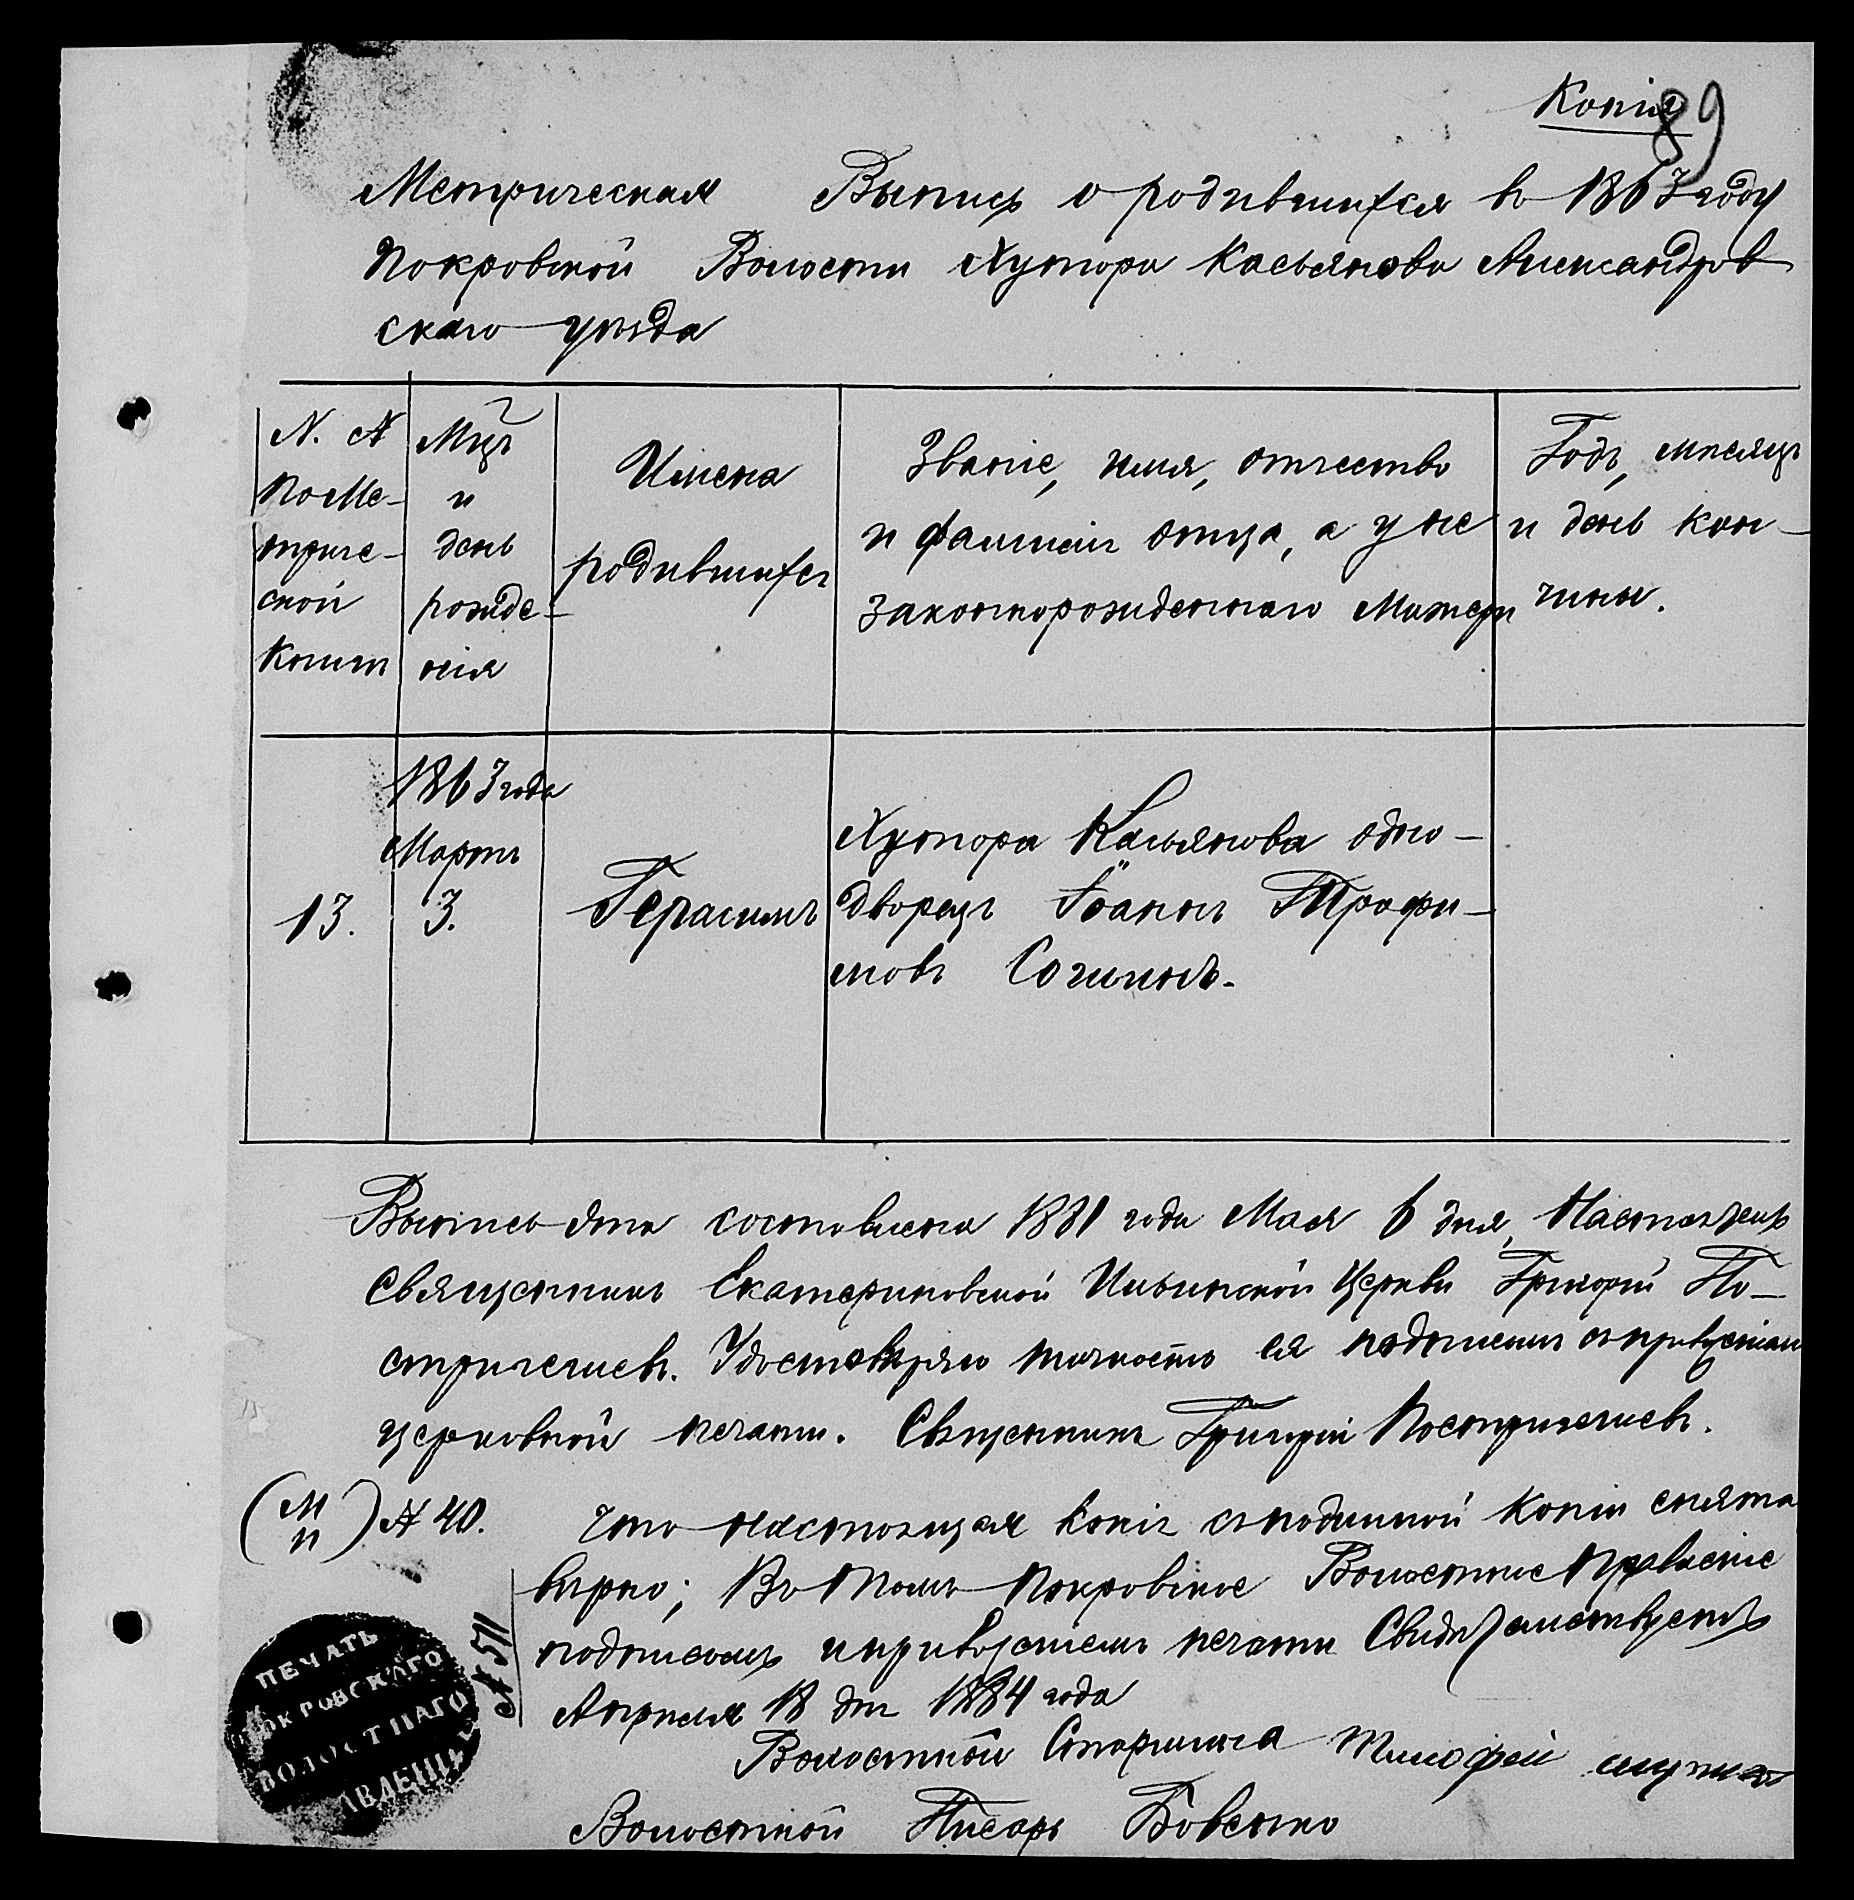 Копія
89
Метрическая Выпись о родившихся въ 1863 году
Покровской Волости Хутора Касьянова Александров
скаго уѣзда
N. N
по Ме-
триче-
ской
книги
Мцъ
и
день
рожде-
нія
Имена
родившихся
Званіе, имя, отчество
и фамилія отца, а у не
законнорожденнаго Матери
Годъ, мѣсяцъ
и день кон-
чины.
13.
1863 года
Мартъ
3.
Герасимъ
Хутора Касьянова одно-
дворецъ Іоаннъ Трофи-
мовъ Согинъ.
Выпись эта составлена 1881 года Мая 6 дня, Настоящую
Священникъ Екатериновской Ильинской Церкви Григорій По-
стригачевъ. Удостовѣряю точность ея подписомъ съ приложеніемъ
церковной печати. Священникъ Григорій Постригачевъ.
(М
П) N 40.
Что настоящая копія съ подлинной копіи снята
вѣрно; Въ томъ Покровское Волостное Правленіе
подписомъ и приложеніемъ печати Свидѣтельствуетъ
Апрѣля 18 дня 1884 года
N 511
Волостной Старшина Тимофей
Волостной Писарь Бовенко
ПЕЧАТЬ
ПОКРОВСКАГО
ВОЛОСТНАГО
ПРАВЛЕНІЯ